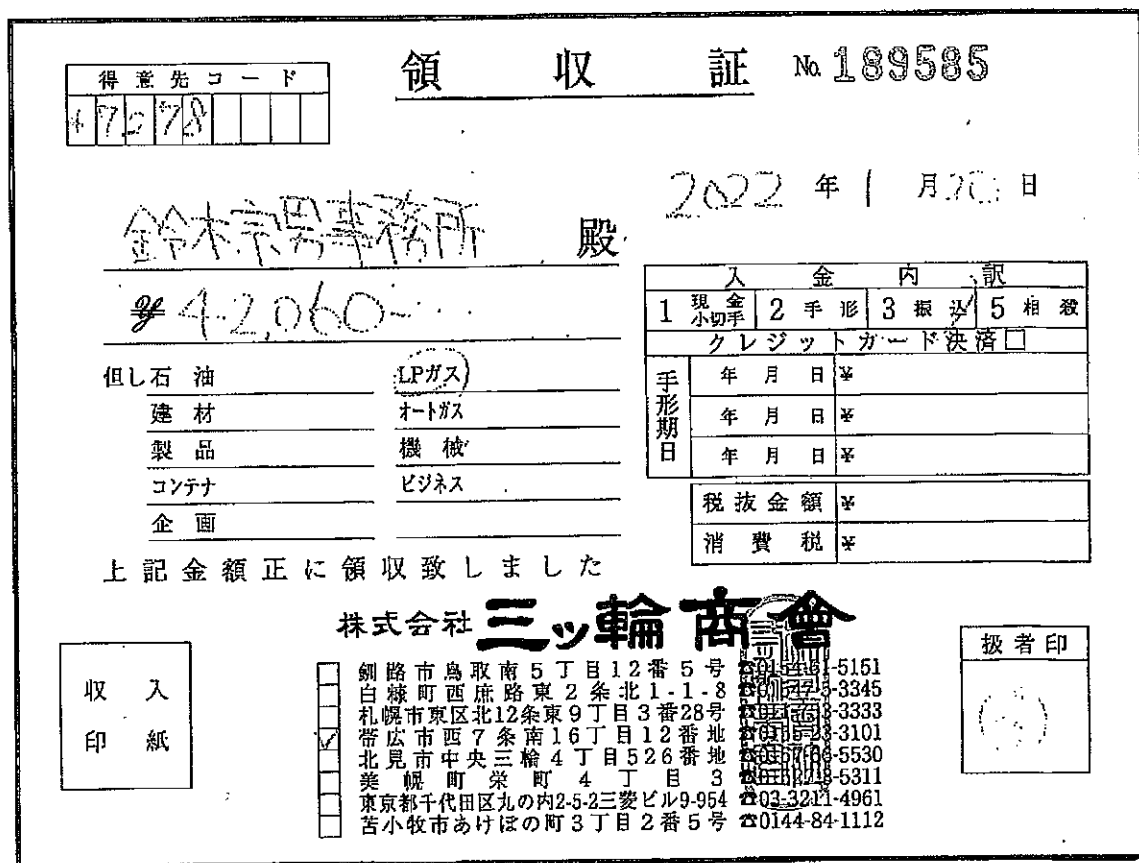 領収証 No. 189585
得意先コード
2022年1月20日
鈴木宗男事務所 殿
¥42,060-
入金内訳
1 現金小切手 2 手形 3 振込 5 相殺
クレジットカード決済□
手形期日
年月日 ¥
年月日 ¥
年月日 ¥
税抜金額 ¥
消費税 ¥
但し石油 LPガス
建材 オートガス
製品 機械
コンテナ ビジネス
企画
上記金額正に領収致しました
株式会社 三ッ輪商會
収入印紙
扱者印
釧路市鳥取南5丁目12番5号 ☎0154-51-5151
白糠町西庶路東2条北1-1-8
札幌市東区北12条東9丁目3番28号
帯広市西7条南16丁目12番地
北見市中央三輪4丁目526番地
美幌町栄町4丁目3
東京都千代田区丸の内2-5-2三菱ビル9-954 ☎03-3211-4961
苫小牧市あけぼの町3丁目2番5号 ☎0144-84-1112